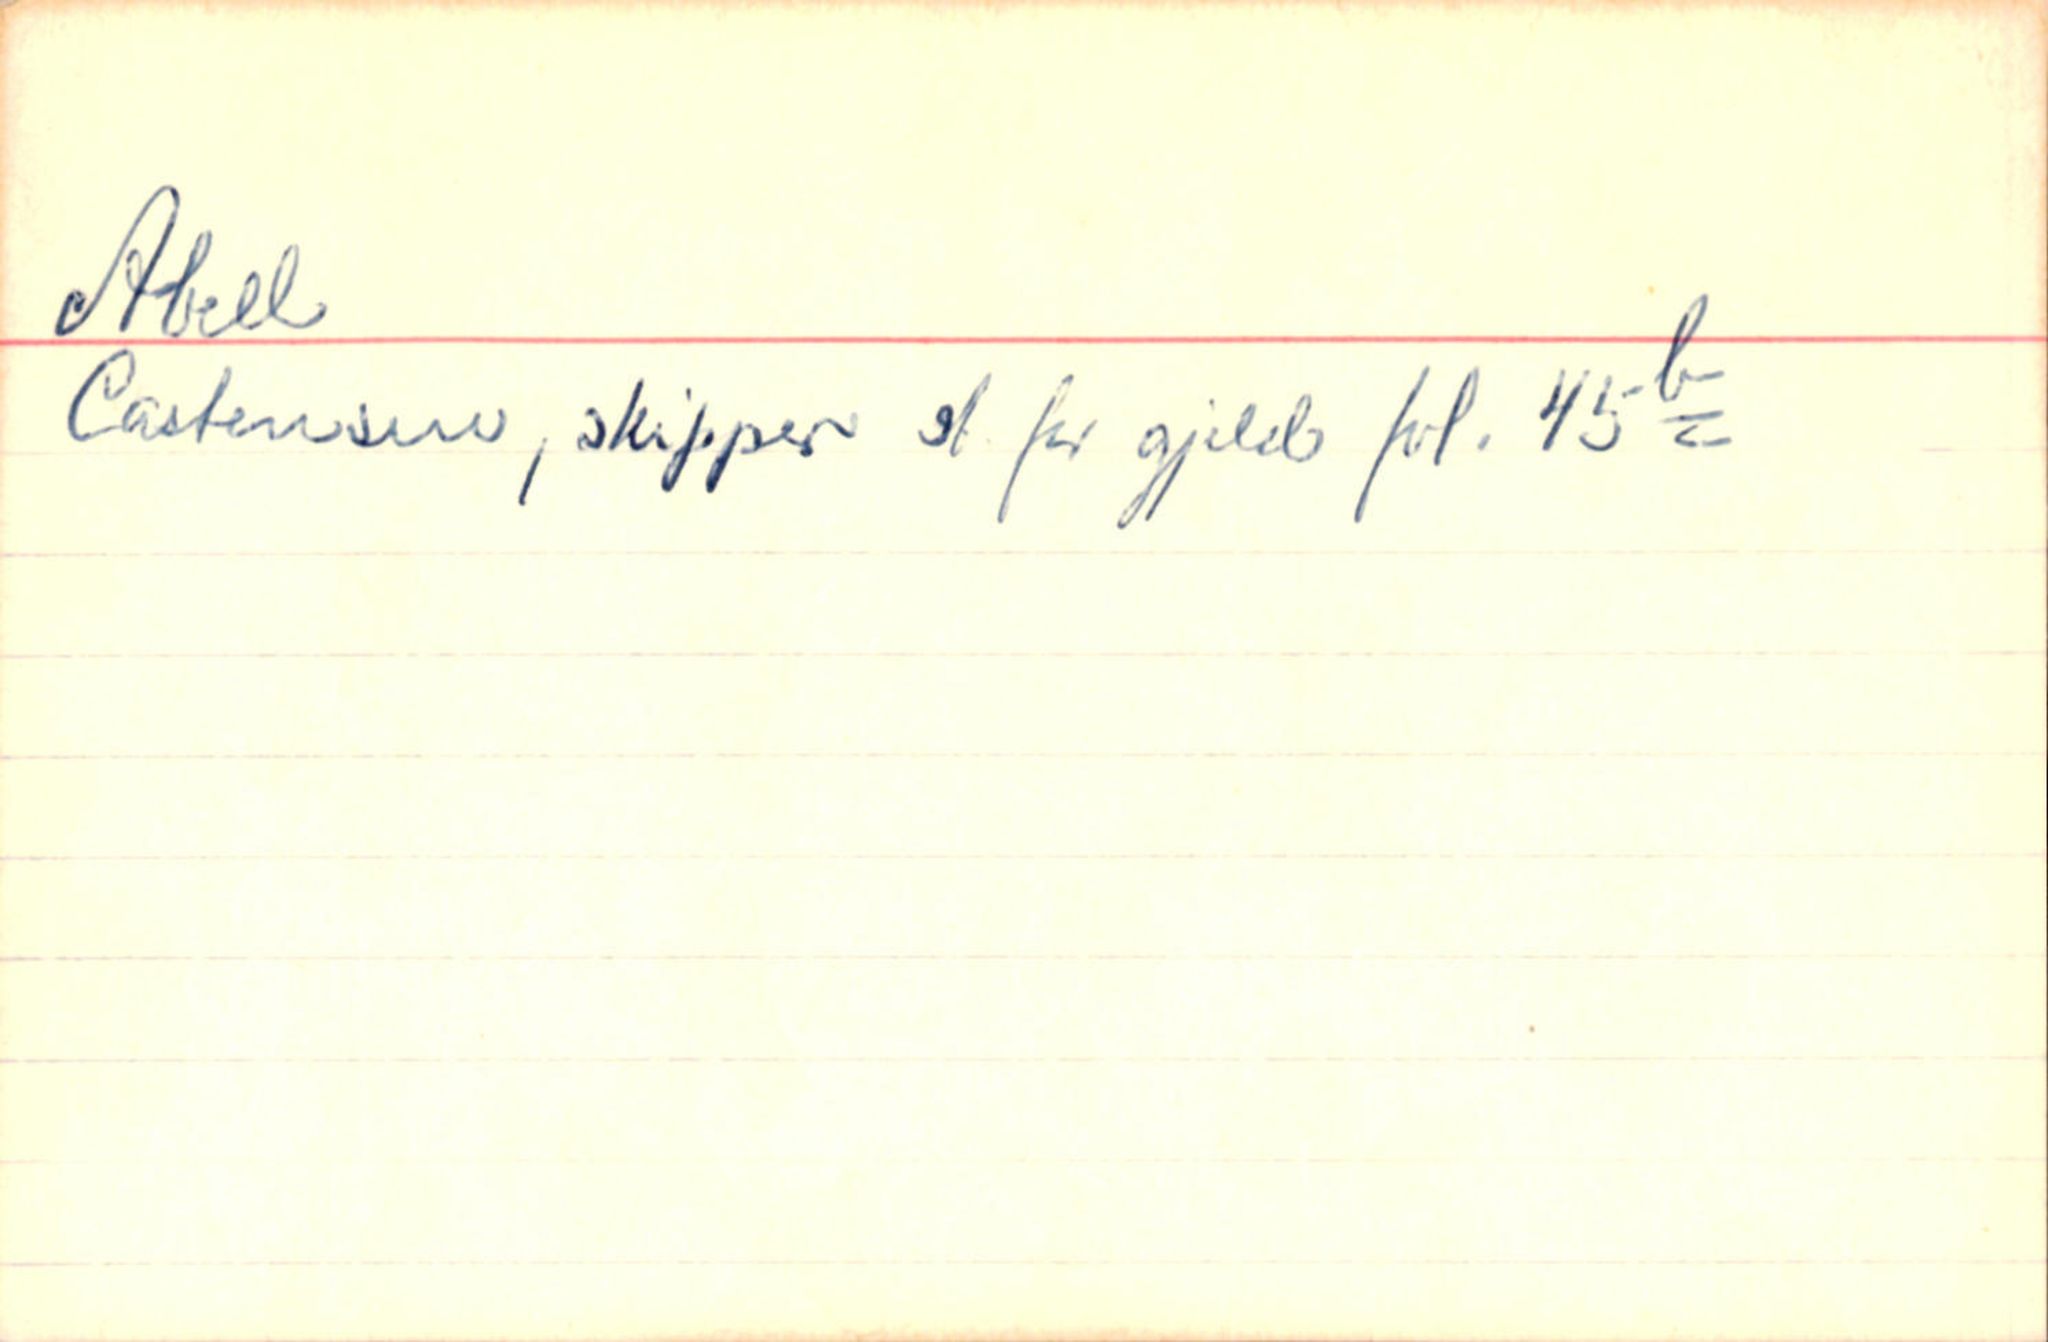 Abell
Castensen, skipper st. for gjeld fol. 45 b